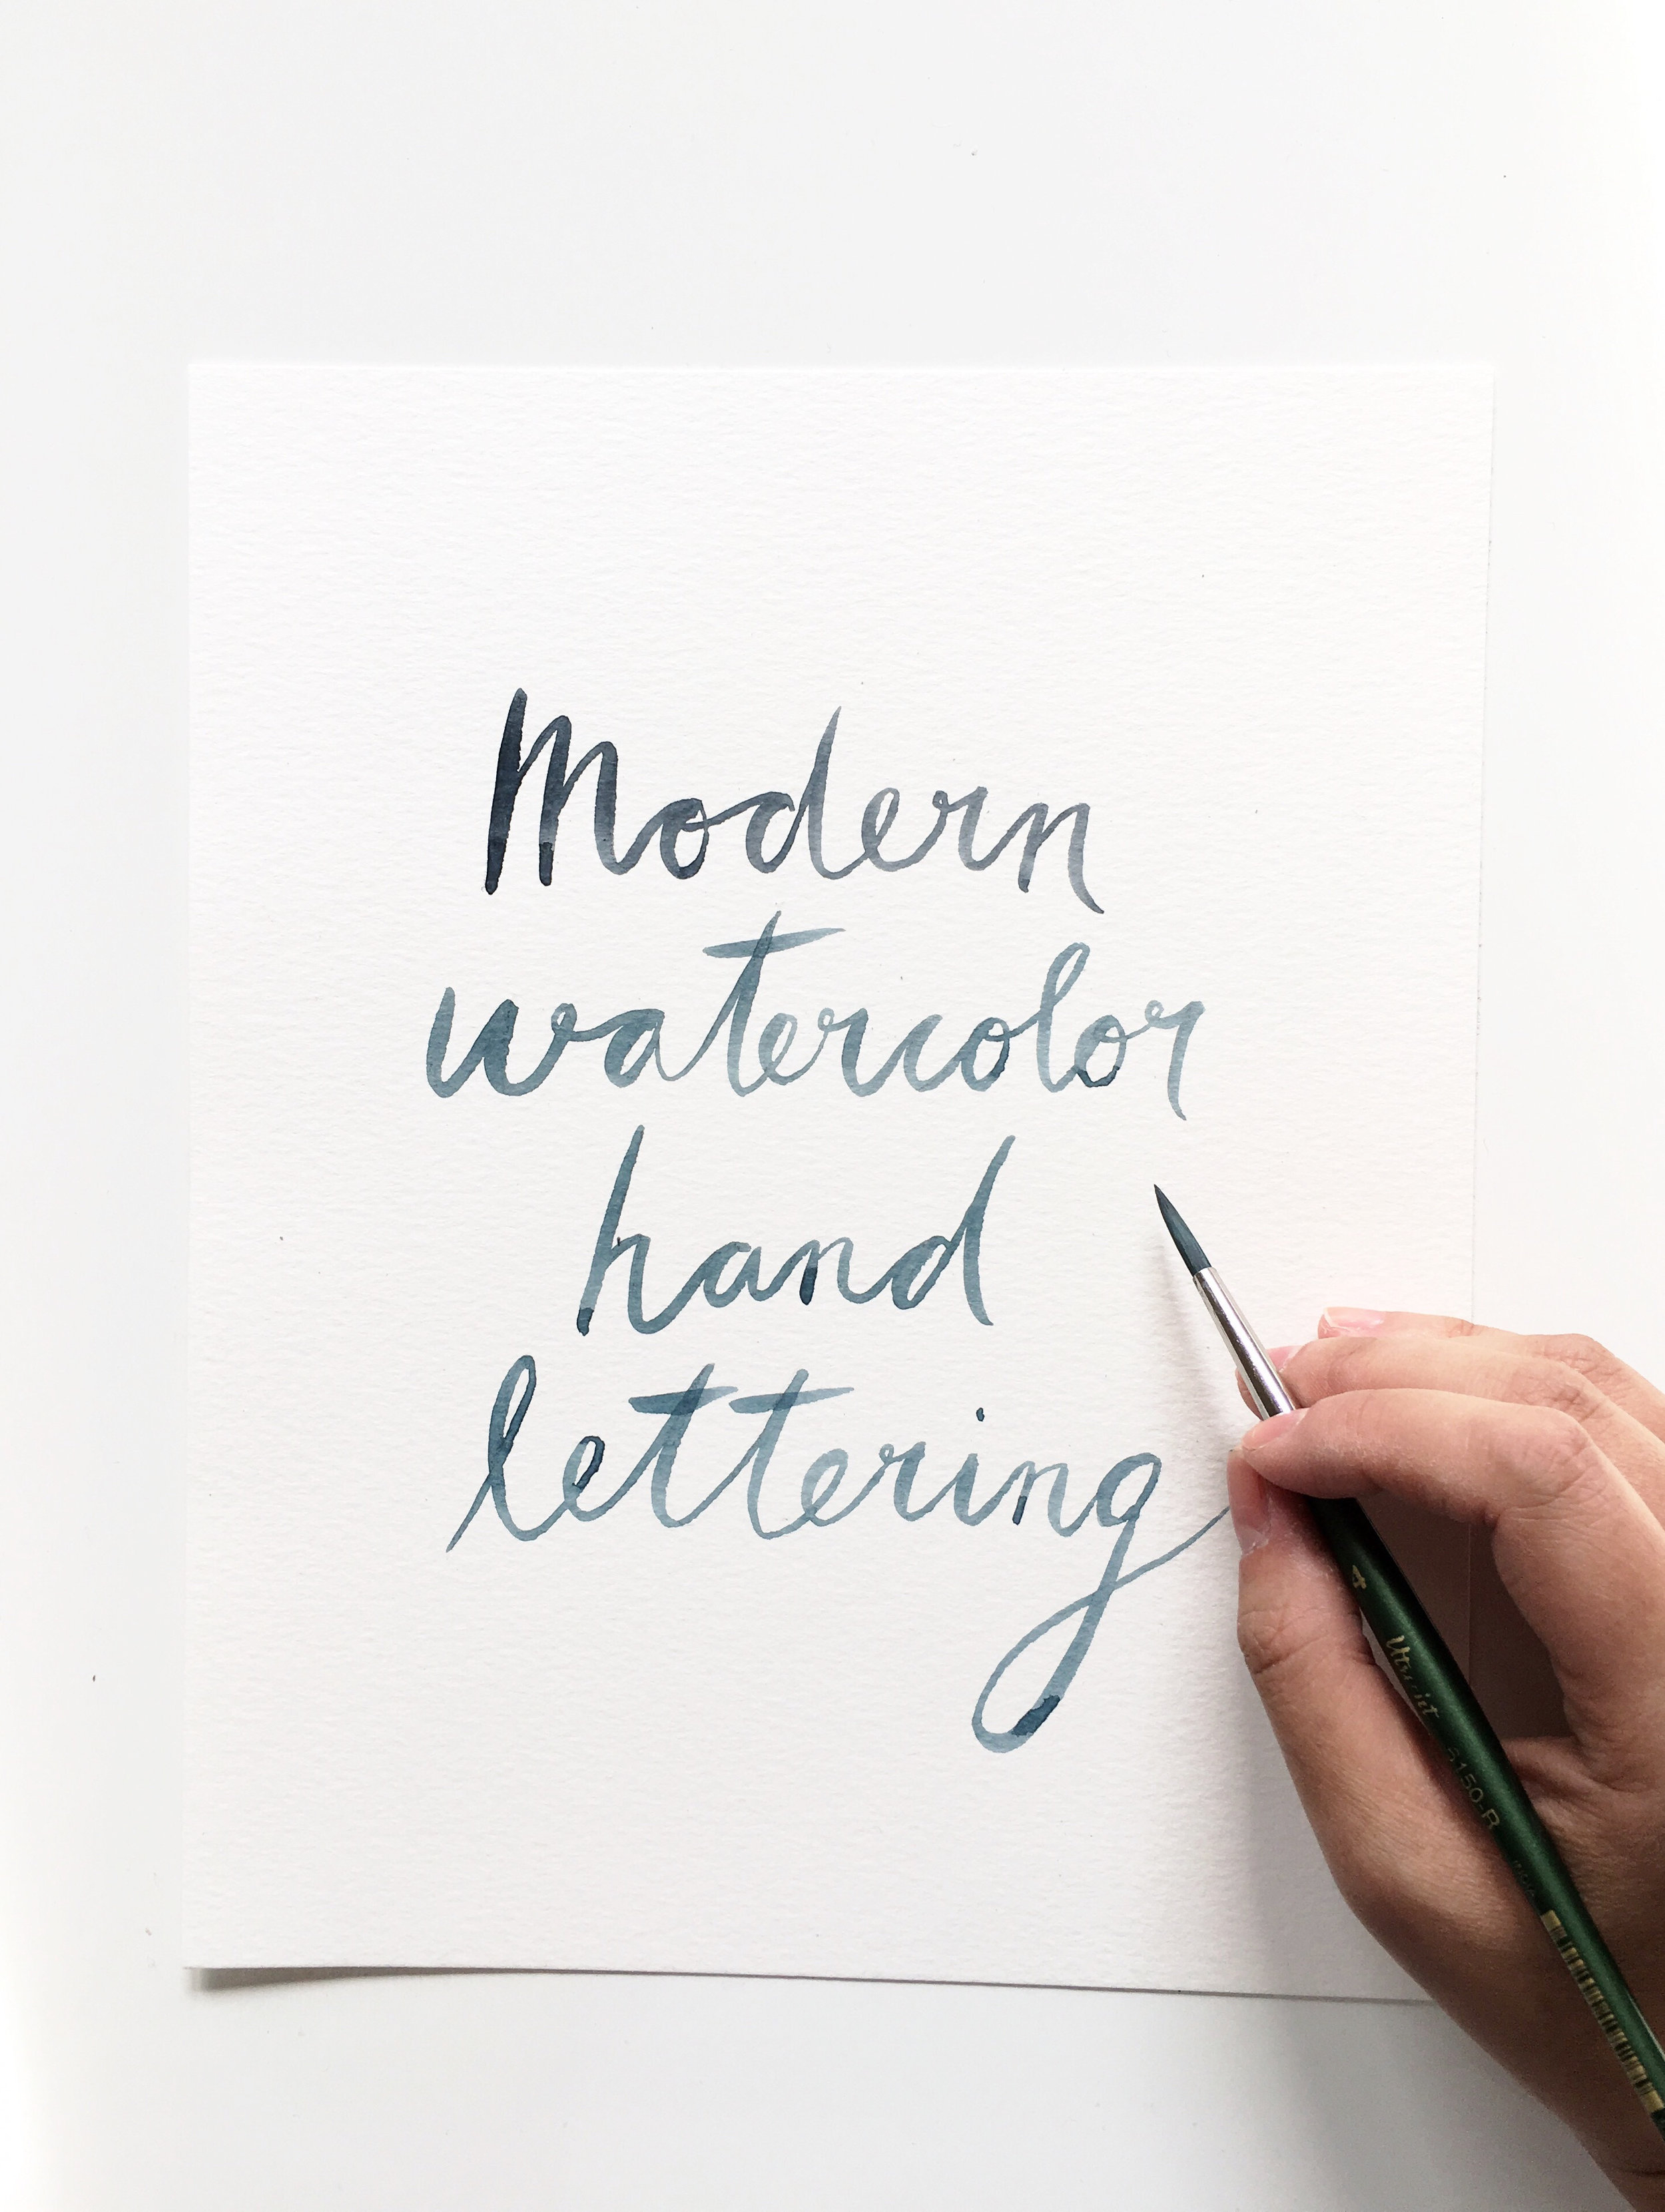 Modern
watercolor
hand
lettering
4
Utrecht
6150-R